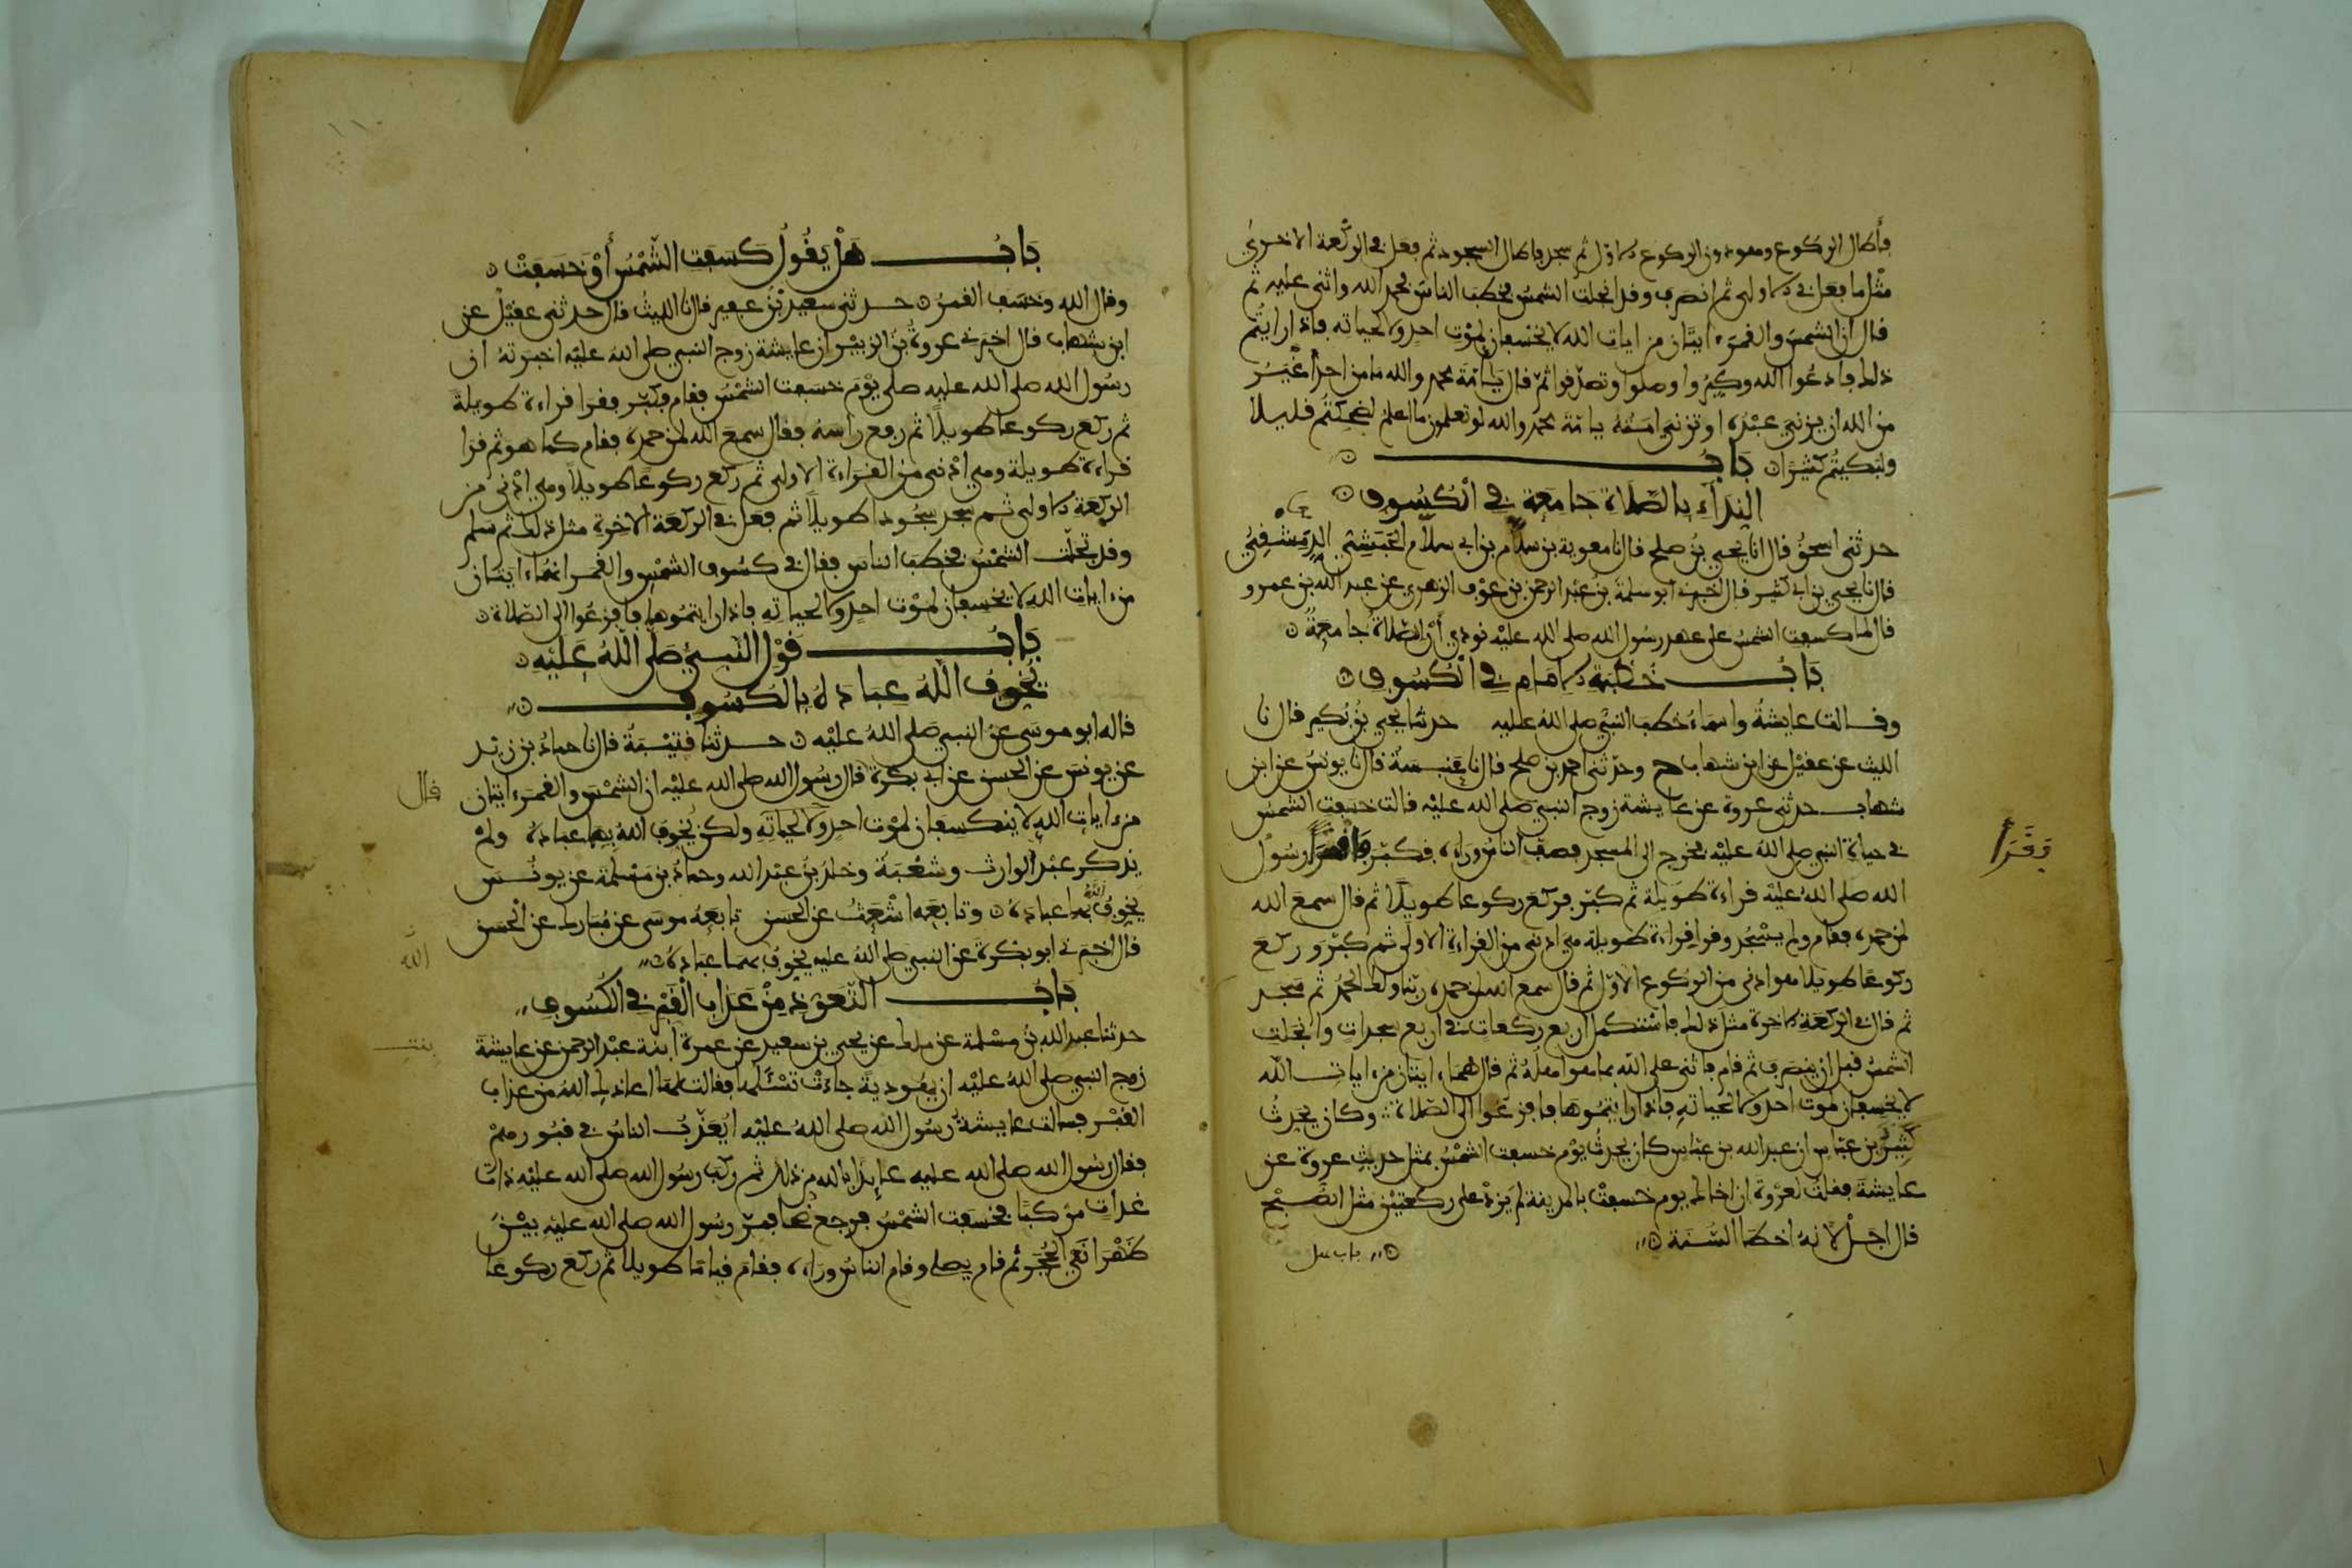 فأطال الركوع وهو دون الركوع الاول ثم سجد فاطال السجود ثم فعل في الركعة الاخرى
مثل ما فعل في الاولى ثم انصرف وقد انجلت الشمس فخطب الناس فحمد الله واثنى عليه ثم
قال ان الشمس والقمر ءايتان من ايات الله لا يخسفان لموت احد ولا لحياته فاذا رايتم
ذلك فادعوا الله وكبروا وصلوا وتصدقوا ثم قال يا امة محمد والله ما من احد أغير
من الله ان يزني عبده او تزني امته يا امة محمد والله لو تعلمون ما اعلم لضحكتم قليلا
ولبكيتم كثيرا باب
النداء بالصلاة جامعة في الكسوف
حدثني اسحق قال انا يحيى بن صلح قال نا معوية بن سلام بن ابي سلام الحبشي الدمشقي
قال نا يحيى بن ابي كثير قال اخبرني ابو سلمة بن عبد الرحمن بن عوف الزهري عن عبد الله بن عمرو
قال لما كسفت الشمس على عهد رسول الله صلى الله عليه نودي أن الصلاة جامعة
باب خطبة الامام في الكسوف
وقالت عايشة واسماء خطب النبي صلى الله عليه حدثنا يحيى بن بكير قال نا
الليث عن عقيل عن ابن شهاب ح وحدثني احمد بن صلح قال نا عنبسة قال نا يونس عن ابن
شهاب حدثني عروة عن عايشة زوج النبي صلى الله عليه قالت خسفت الشمس
في حياة النبي صلى الله عليه فخرج الى المسجد فصف الناس وراءه فكبر فاقترأ رسول
وقرأ
الله صلى الله عليه قراءة طويلة ثم كبر فركع ركوعا طويلا ثم قال سمع الله
لمن حمده فقام ولم يسجد وقرا قراءة طويلة هي ادنى من القراءة الاولى ثم كبر وركع
ركوعا طويلا هو ادنى من الركوع الاول ثم قال سمع الله لمن حمده ربنا ولك الحمد ثم سجد
ثم قال في الركعة الاخرة مثل ذلك فاستكمل اربع ركعات في اربع سجدات وانجلت
الشمس قبل ان ينصرف ثم قام فاثنى على الله بما هو اهله ثم قال هما ءايتان من ءايات الله
لا يخسفان لموت احد ولا لحياته فاذا رايتموها فافزعوا الى الصلاة وكان يحدث
كثير بن عباس ان عبد الله بن عباس كان يحدث يوم خسفت الشمس بمثل حديث عروة عن
عايشة فقلت لعروة ان اخاك يوم خسفت بالمدينة لم يزد على ركعتين مثل الصبح
قال اجل لانه اخطا السنة
باب هل
باب هل يقول كسفت الشمس أو خسفت
وقال الله وخسف القمر حدثني سعيد بن عفير قال نا الليث قال حدثني عقيل عن
ابن شهاب قال اخبرني عروة بن الزبير ان عايشة زوج النبي صلى الله عليه اخبرته ان
رسول الله صلى الله عليه صلى يوم خسفت الشمس فقام فكبر فقرا قراءة طويلة
ثم ركع ركوعا طويلا ثم رفع راسه فقال سمع الله لمن حمده فقام كما هو ثم قرا
قراءة طويلة وهي ادنى من القراءة الاولى ثم ركع ركوعا طويلا وهي ادنى من
الركعة الاولى ثم سجد سجودا طويلا ثم فعل في الركعة الاخرة مثل ذلك ثم سلم
وقد تجلت الشمس فخطب الناس فقال في كسوف الشمس والقمر انهما ءايتان
من ءايات الله لا يخسفان لموت احد ولا لحياته فاذا رايتموها فافزعوا الى الصلاة
باب قول النبي صلى الله عليه
يخوف الله عباده بالكسوف
قاله ابو موسى عن النبي صلى الله عليه حدثنا قتيبة قال نا حماد بن زيد
عن يونس عن الحسن عن ابي بكرة قال رسول الله صلى الله عليه ان الشمس والقمر ءايتان
قال
من ءايات الله لا ينكسفان لموت احد ولا لحياته ولكن يخوف الله بها عباده ولم
يذكر عبد الوارث وشعبة وخلد بن عبد الله وحماد بن سلمة عن يونس
يخوف الله بها عباده وتابعه اشعث عن الحسن تابعه موسى عن مبارك عن الحسن
قال اخبرني ابو بكرة عن النبي صلى الله عليه يخوف بهما عباده
الله
باب التعوذ من عذاب القبر في الكسوف
حدثنا عبد الله بن مسلمة عن ملك عن يحيى بن سعيد عن عمرة ابنة عبد الرحمن عن عايشة
بنت
زوج النبي صلى الله عليه ان يهودية جاءت تسئلها فقالت لها اعاذك الله من عذاب
القبر فسالت عايشة رسول الله صلى الله عليه ايعذب الناس في قبورهم
فقال رسول الله صلى الله عليه عايذا بالله من ذلك ثم ركب رسول الله صلى الله عليه ذات
غداة مركبا فخسفت الشمس فرجع ضحا فمر رسول الله صلى الله عليه بين
ظهراني الحجر ثم قام يصلي وقام الناس وراءه فقام قياما طويلا ثم ركع ركوعا